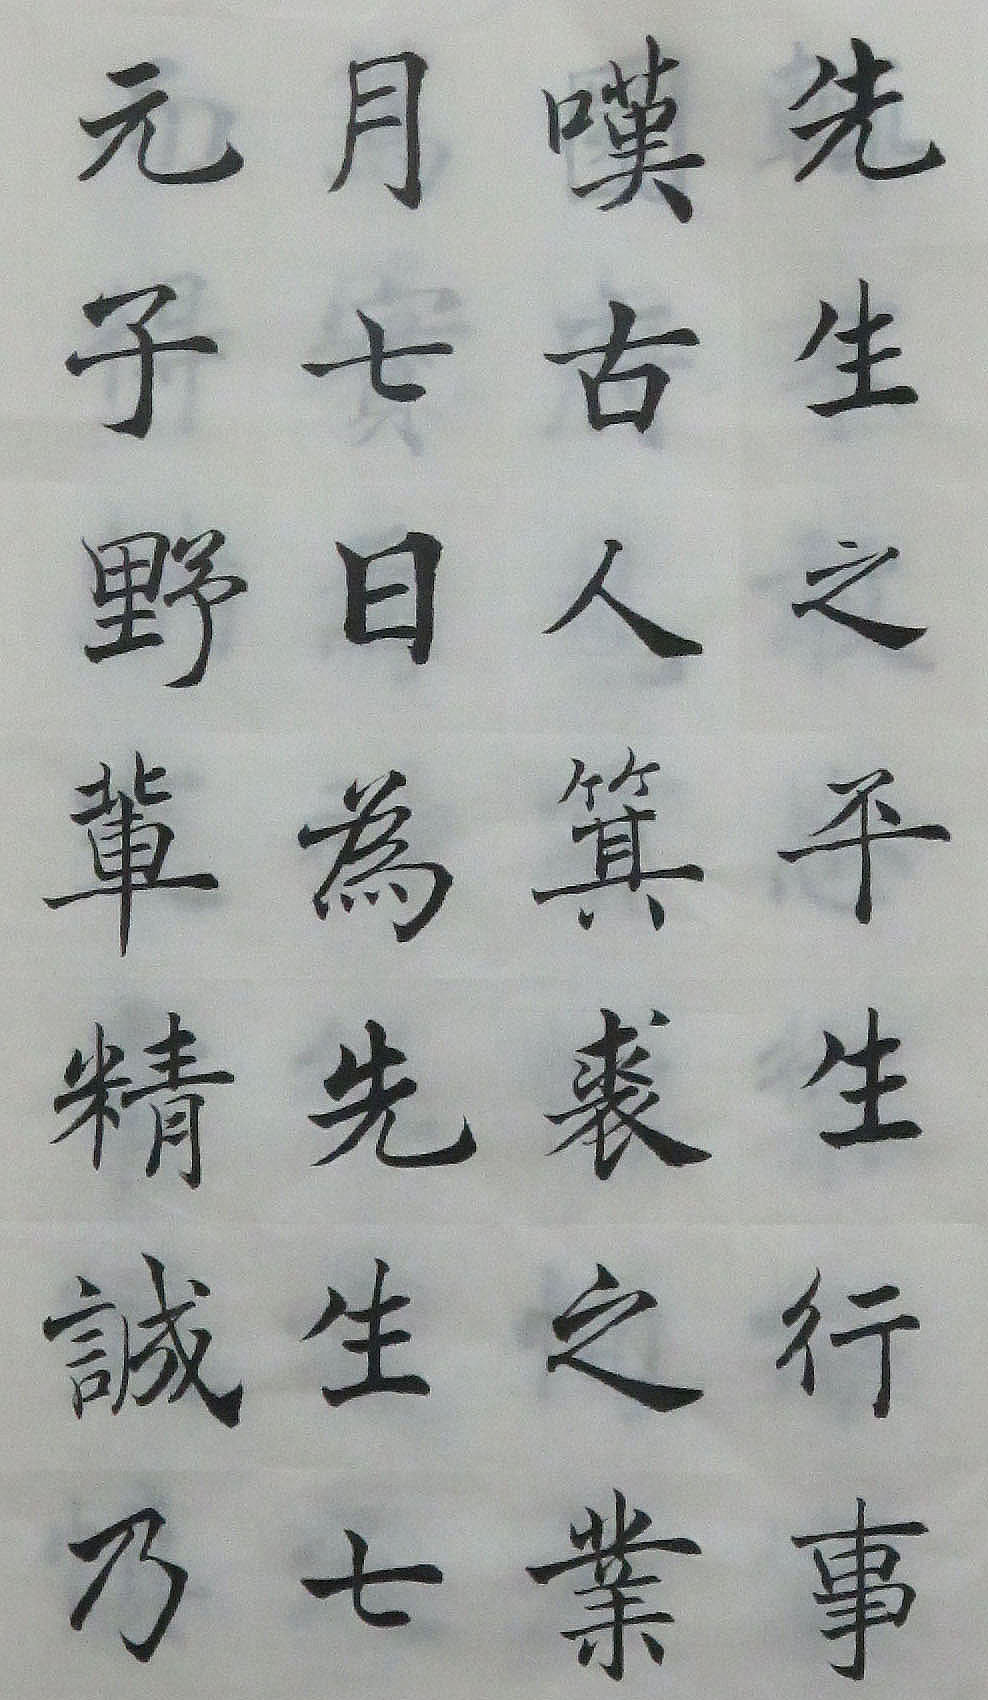 先生之平生行事
嘆古人箕裘之業
月七日為先生七
元子野輩精誠乃